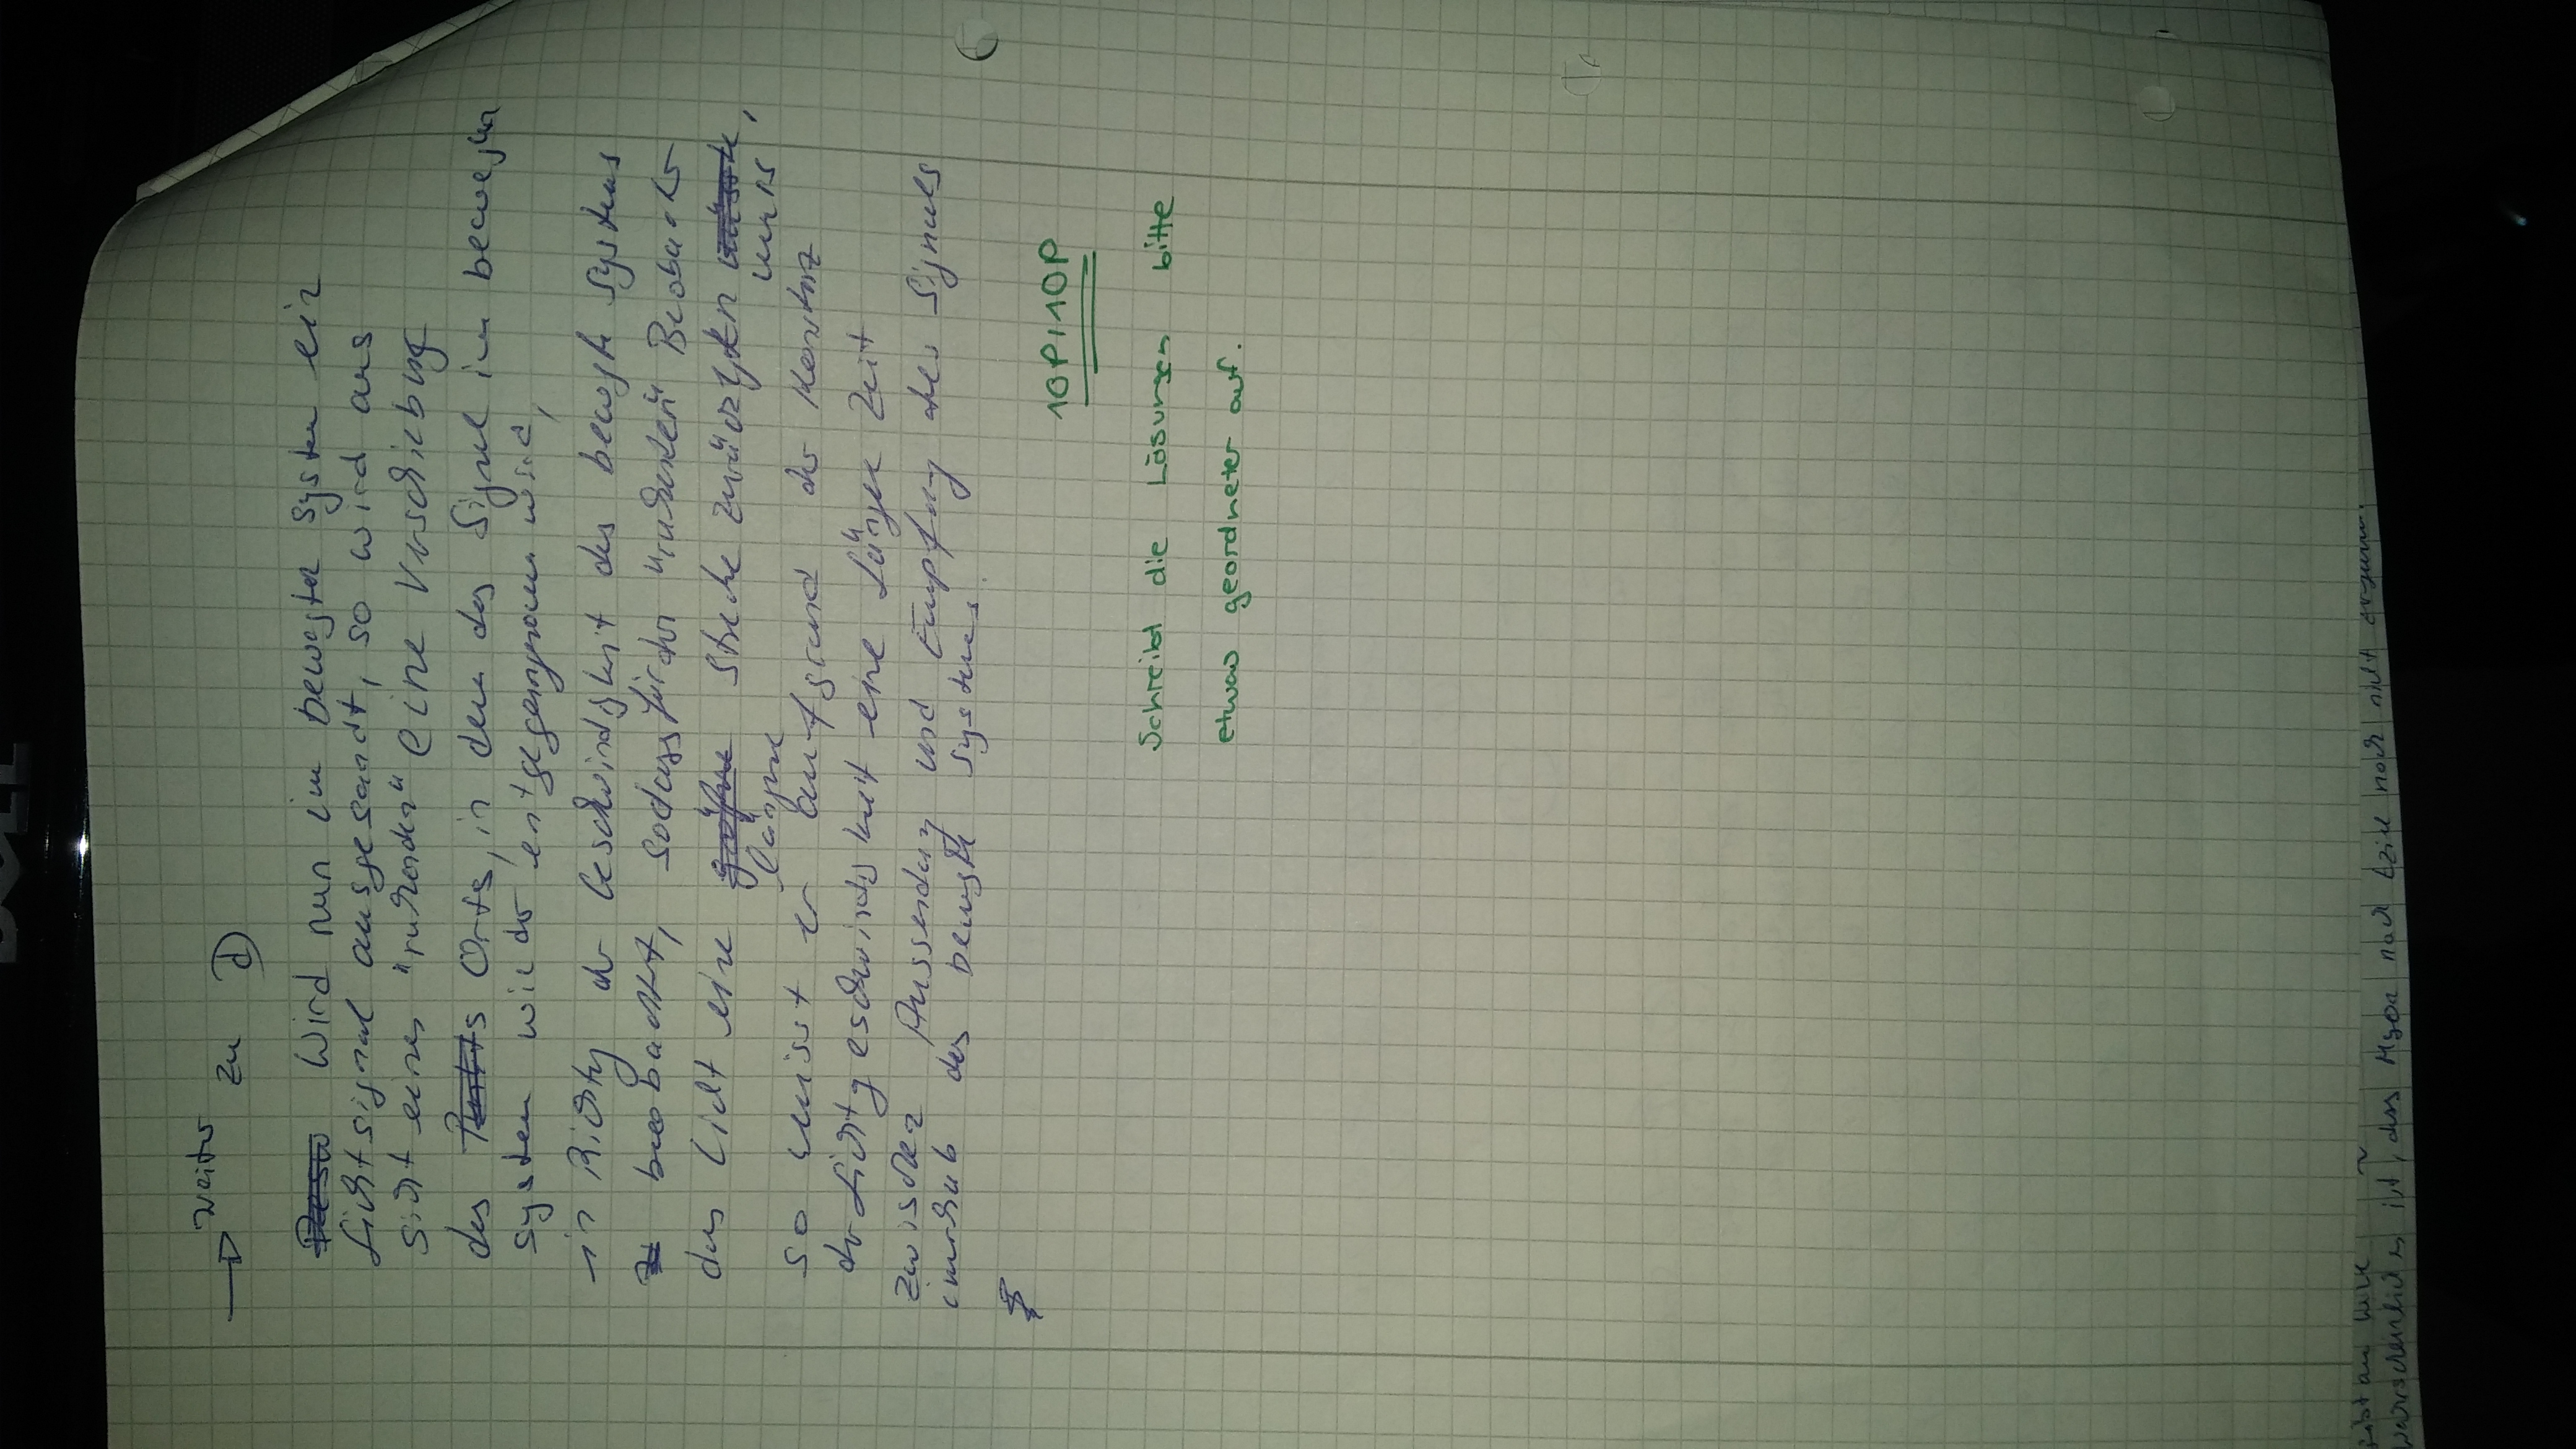 DELL
weiter
zu d)
Wird nun im bewegten System ein
Lichtsignal ausgesandt, so wird aus
Sicht eines "ruhenden" eine Verschiebung
des Orts, in dem das Signal im bewegten
System wieder wird,
in Richtung der Geschwindigkeit des bewegten Systems
beobachtet, sodass für den "ruhenden" Beobachter
das Licht eine längere Strecke zurücklegen muss,
so misst er aufgrund der Konstanz
der Lichtgeschwindigkeit eine längere Zeit
zwischen Aussendung und Empfang des Signals
innerhalb des bewegten Systems.
10P/10P
Schreibt die Lösungen bitte
etwas geordneter auf.
ist, dass Myon nach noch nicht